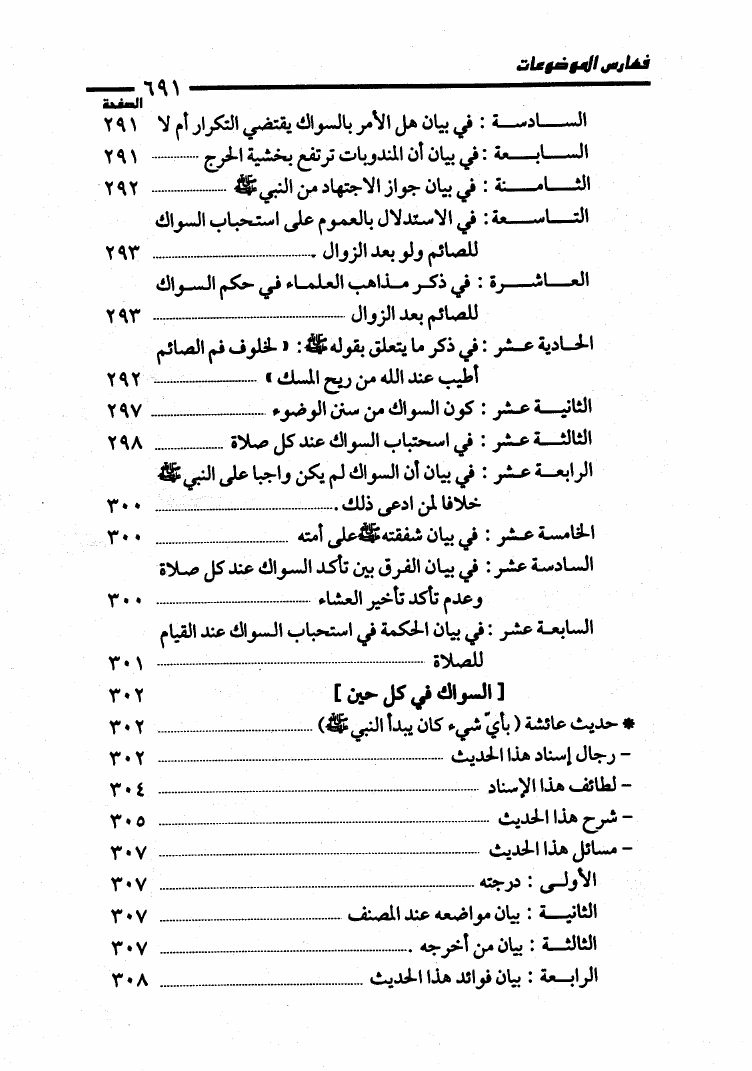 فهارس الموضوعات
٦٩١
الصفحة
السادسة : في بيان هل الأمر بالسواك يقتضي التكرار أم لا ٢٩١
السابعة : في بيان أن المندوبات ترتفع بخشية الحرج ............ ٢٩١
الثامنة : في بيان جواز الاجتهاد من النبي ﷺ ............ ٢٩٢
التاسعة : في الاستدلال بالعموم على استحباب السواك
للصائم ولو بعد الزوال ............ ٢٩٣
العاشرة : في ذكر مذاهب العلماء في حكم السواك
للصائم بعد الزوال ............ ٢٩٣
الحادية عشر : في ذكر ما يتعلق بقوله ﷺ : « لخلوف فم الصائم
أطيب عند الله من ريح المسك » ............ ٢٩٢
الثانية عشر : كون السواك من سنن الوضوء ............ ٢٩٧
الثالثة عشر : في اسحتباب السواك عند كل صلاة ............ ٢٩٨
الرابعة عشر : في بيان أن السواك لم يكن واجبا على النبي ﷺ
خلافا لمن ادعى ذلك ............ ٣٠٠
الخامسة عشر : في بيان شفقته ﷺ على أمته ............ ٣٠٠
السادسة عشر : في بيان الفرق بين تأكد السواك عند كل صلاة
وعدم تأكد تأخير العشاء ............ ٣٠٠
السابعة عشر : في بيان الحكمة في استحباب السواك عند القيام
للصلاة ............ ٣٠١
[ السواك في كل حين ] ٣٠٢
* حديث عائشة ( بأيّ شيء كان يبدأ النبي ﷺ ) ............ ٣٠٢
- رجال إسناد هذا الحديث ............ ٣٠٢
- لطائف هذا الإسناد ............ ٣٠٤
- شرح هذا الحديث ............ ٣٠٥
- مسائل هذا الحديث ............ ٣٠٧
الأولى : درجته ............ ٣٠٧
الثانية : بيان مواضعه عند المصنف ............ ٣٠٧
الثالثة : بيان من أخرجه ............ ٣٠٧
الرابعة : بيان فوائد هذا الحديث ............ ٣٠٨